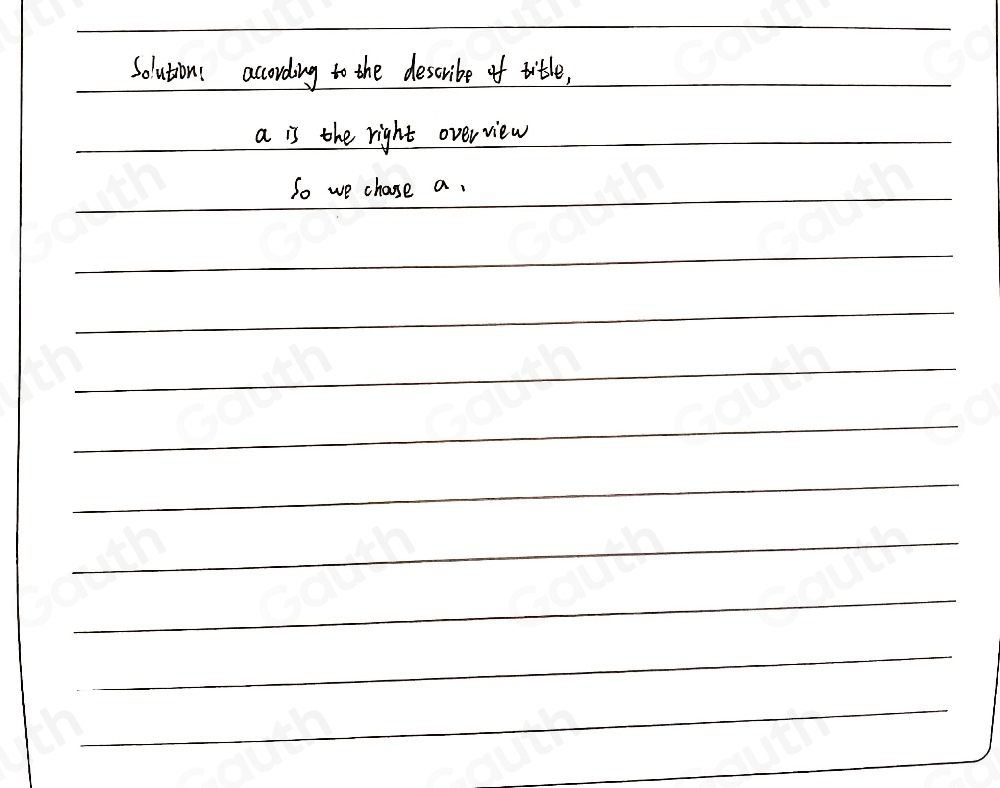 Solution: according to the describe of title,
a is the right overview
So we chose a.
Gauth